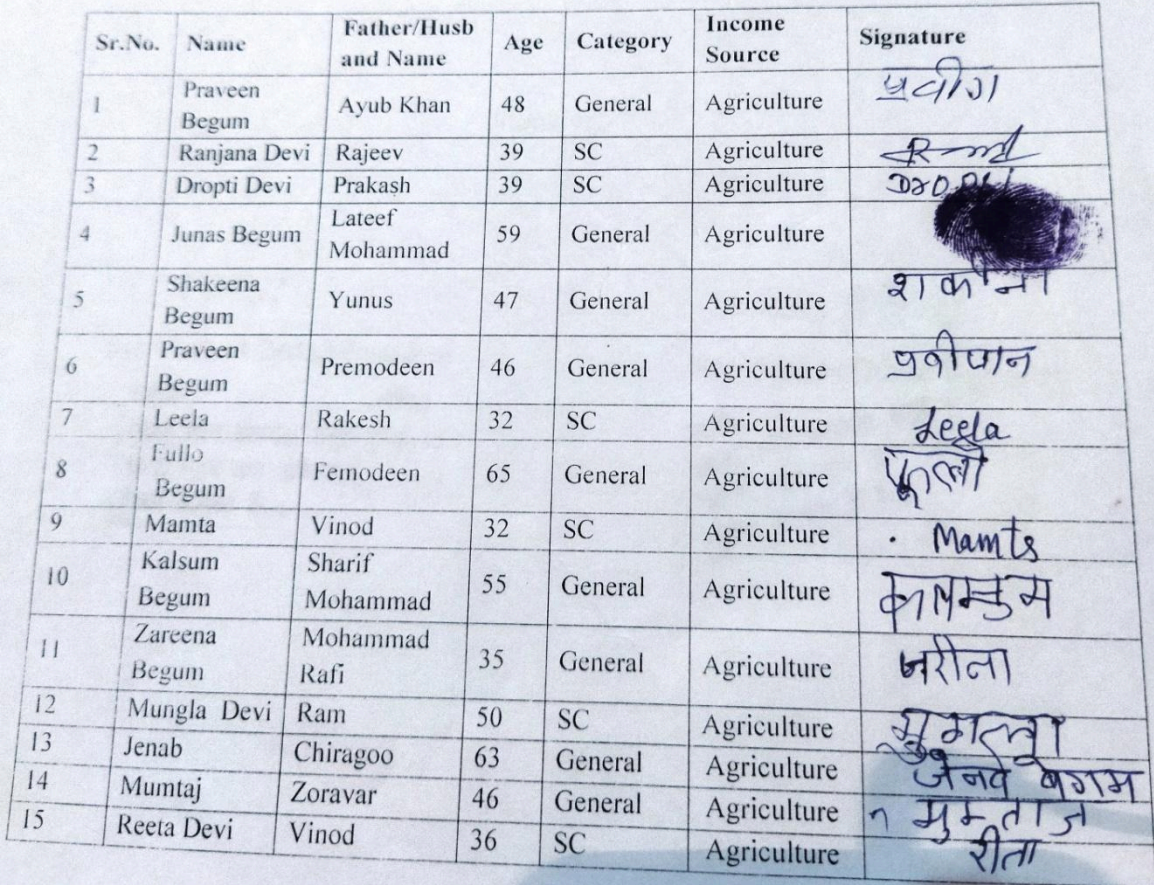 Sr.No. Name Father/Husb and Name Age Category Income Source Signature
1 Praveen Begum Ayub Khan 48 General Agriculture प्रवीण
2 Ranjana Devi Rajeev 39 SC Agriculture
3 Dropti Devi Prakash 39 SC Agriculture
4 Junas Begum Lateef Mohammad 59 General Agriculture
5 Shakeena Begum Yunus 47 General Agriculture शकीना
6 Praveen Begum Premodeen 46 General Agriculture
7 Leela Rakesh 32 SC Agriculture Leela
8 Fullo Begum Femodeen 65 General Agriculture
9 Mamta Vinod 32 SC Agriculture Mamts
10 Kalsum Begum Sharif Mohammad 55 General Agriculture
11 Zareena Begum Mohammad Rafi 35 General Agriculture जरीना
12 Mungla Devi Ram 50 SC Agriculture
13 Jenab Chiragoo 63 General Agriculture जेनव बगम
14 Mumtaj Zoravar 46 General Agriculture मुमताज
15 Reeta Devi Vinod 36 SC Agriculture रीता